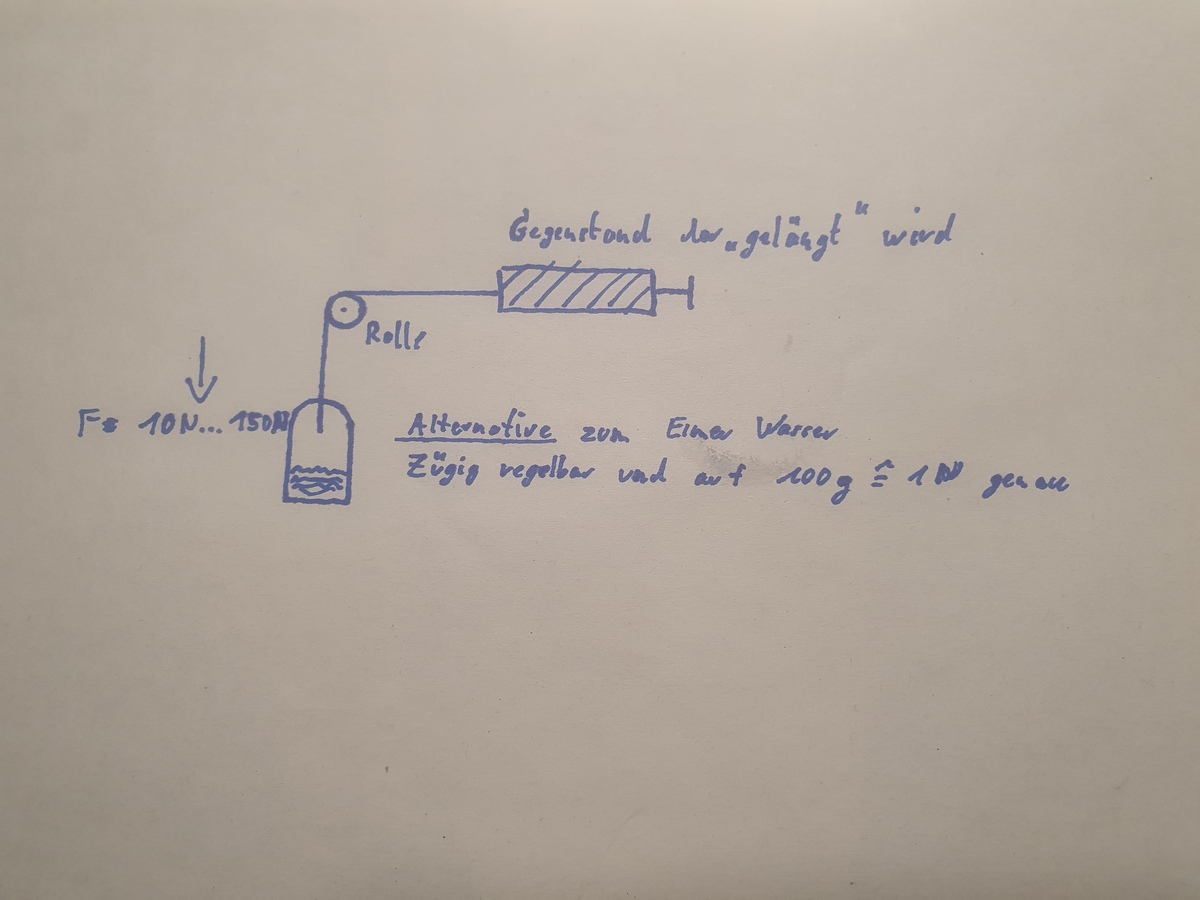 Gegenstand der „gelängt“ wird
Rolle
F= 10N... 150N
Alternative zum Eimer Wasser
Zügig regelbar und auf 100g ≙ 1N genau